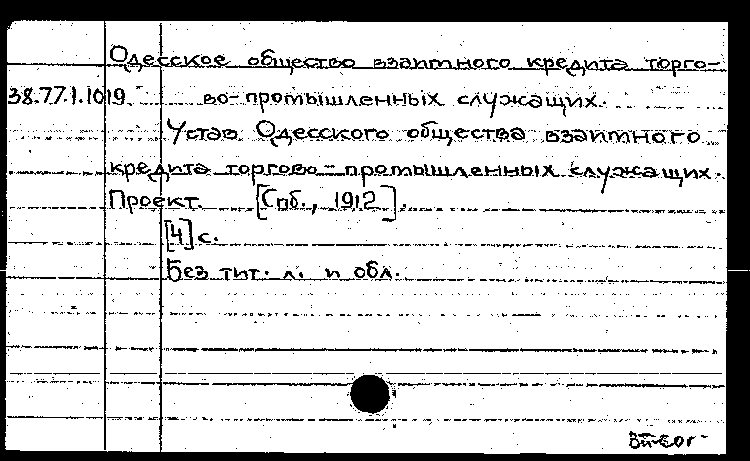 Одесское общество взаимного кредита торго-
38.77.1.1019 во-промышленных служащих.
Устав Одесского общества взаимного
кредита торгово-промышленных служащих.
Проект. [Спб., 1912].
[4] с.
Без тит. л. и обл.